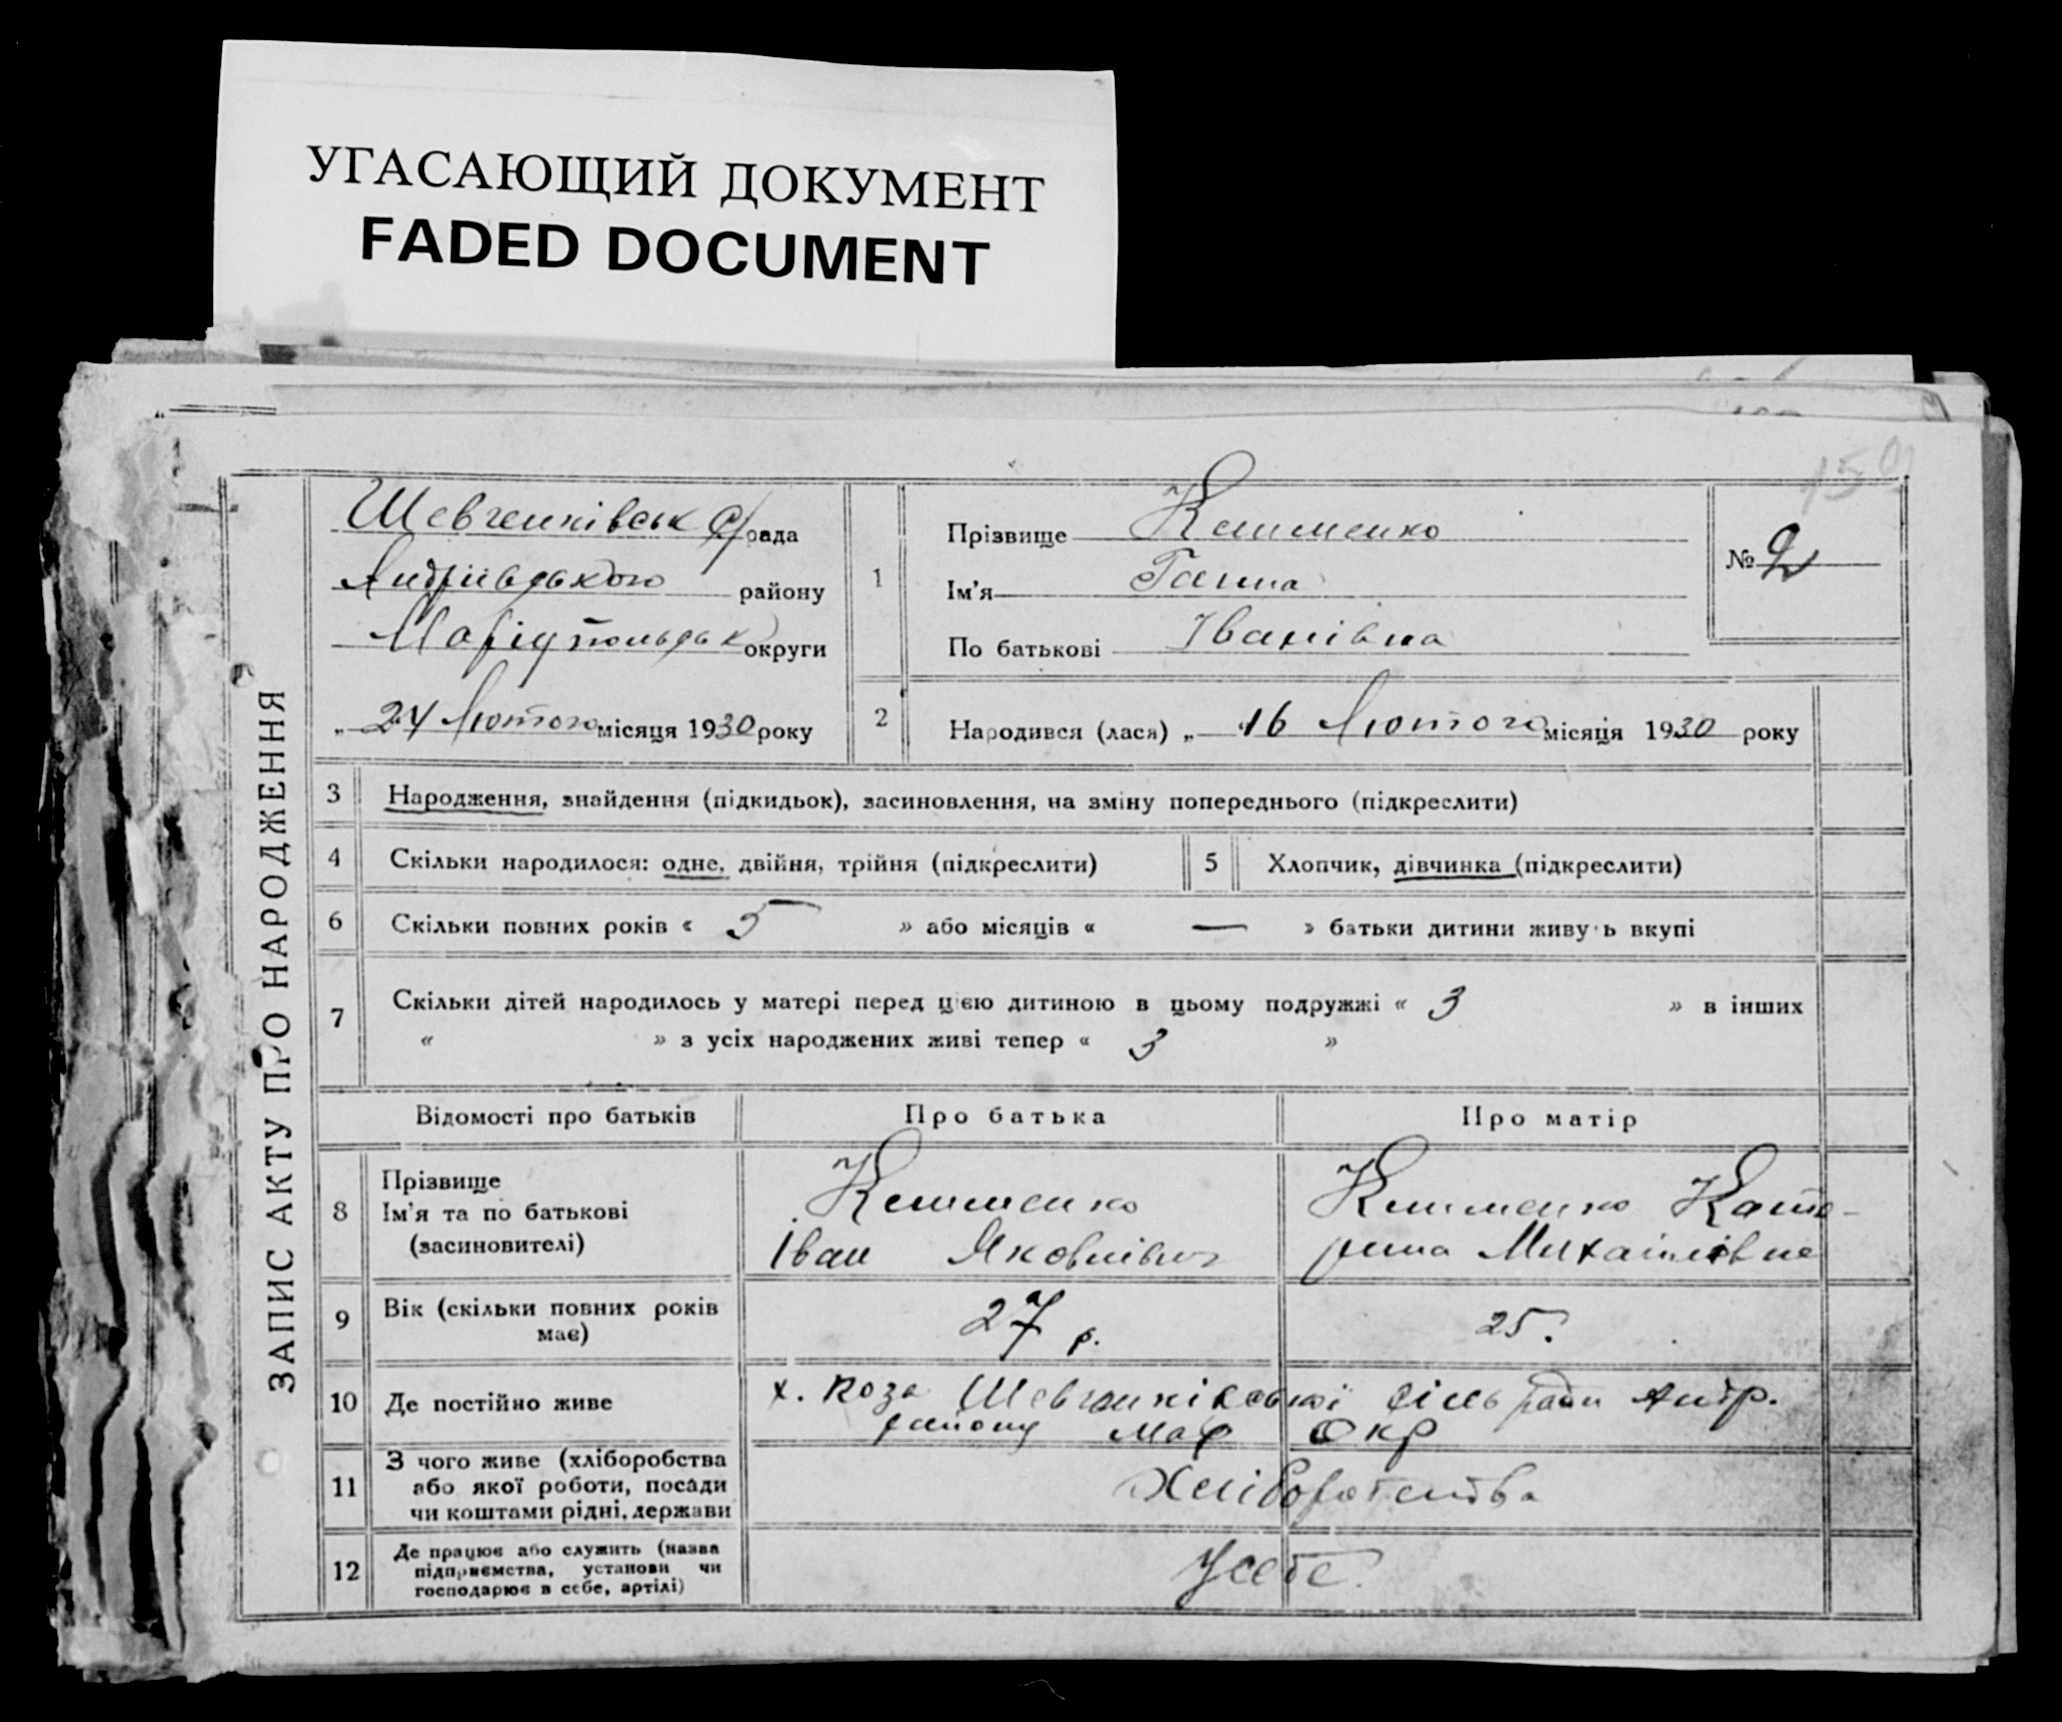 УГАСАЮЩИЙ ДОКУМЕНТ
FADED DOCUMENT
ЗАПИС АКТУ ПРО НАРОДЖЕННЯ
Шевченківськ с/рада
Андріївського району
Маріупольськ округи
„ 24 Лютого місяця 1930 року
1
Прізвище Клименко
Ім'я Ганна
По батькові Іванівна
№ 2
2 Народився (лася) „ 16 Лютого місяція 1930 року
3 Народження, знайдення (підкидьок), засиновлення, на зміну попереднього (підкреслити)
4 Скільки народилося: одне, двійня, трійня (підкреслити)
5 Хлопчик, дівчинка (підкреслити)
6 Скільки повних років « 5 » або місяців « — » батьки дитини живу ь вкупі
7 Скільки дітей народилось у матері перед цією дитиною в цьому подружжі « 3 » в інших
« » з усіх народжених живі тепер « 3 »
Відомості про батьків Про батька Про матір
8 Прізвище
Ім'я та по батькові
(засиновителі)
Клименко
Іван Яковлівич
Клименко Кате-
рина Михайлівна
9 Вік (скільки повних років
має)
27 р.
25.
10 Де постійно живе
х. Роза Шевченківської сільради Андр.
району Мар Окр
11 З чого живе (хліборобства
або якої роботи, посади
чи коштами рідні, держави
Хліборобства
12 Де працює або служить (назва
підприємства, установи чи
господарює в себе, артілі)
У себе.